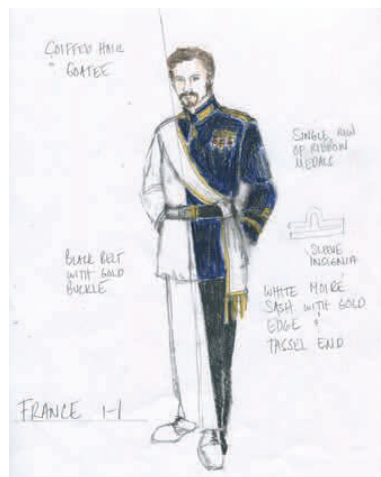 COIFFED HAIR
& GOATEE
SINGLE ROW
OF RIBBON
MEDALS
SLEEVE
INSIGNIA
BLACK BELT
WITH GOLD
BUCKLE
WHITE MOIRÉ
SASH WITH GOLD
EDGE &
TASSEL END
FRANCE 1-1